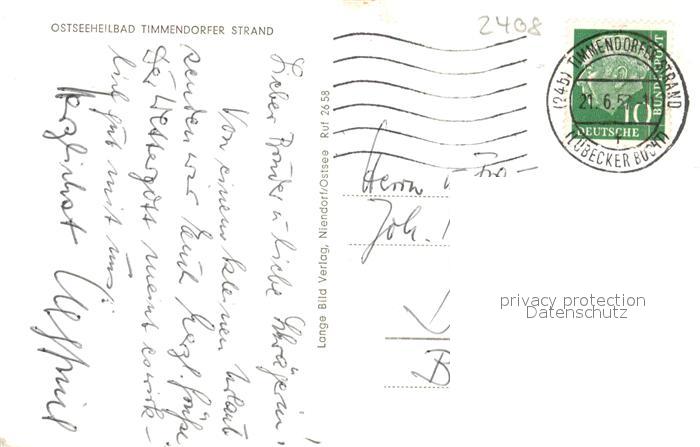 OSTSEEHEILBAD TIMMENDORFER STRAND
2408
Lieber Bruder u. liebe Schwägerin!
Von einem kleinen Urlaub
senden wir Euch herzl. Grüße
Der Wettergott meint es wirk-
lich gut mit uns!
Herzlichst
Lange Bild Verlag, Niendorf/Ostsee Ruf 2658
Herrn u. Fra-
Joh.
K
(24b) TIMMENDORFER STRAND
21.6.57
f
(LÜBECKER BUCHT)
10
DEUTSCHE
BUNDESPOST
privacy protection
Datenschutz